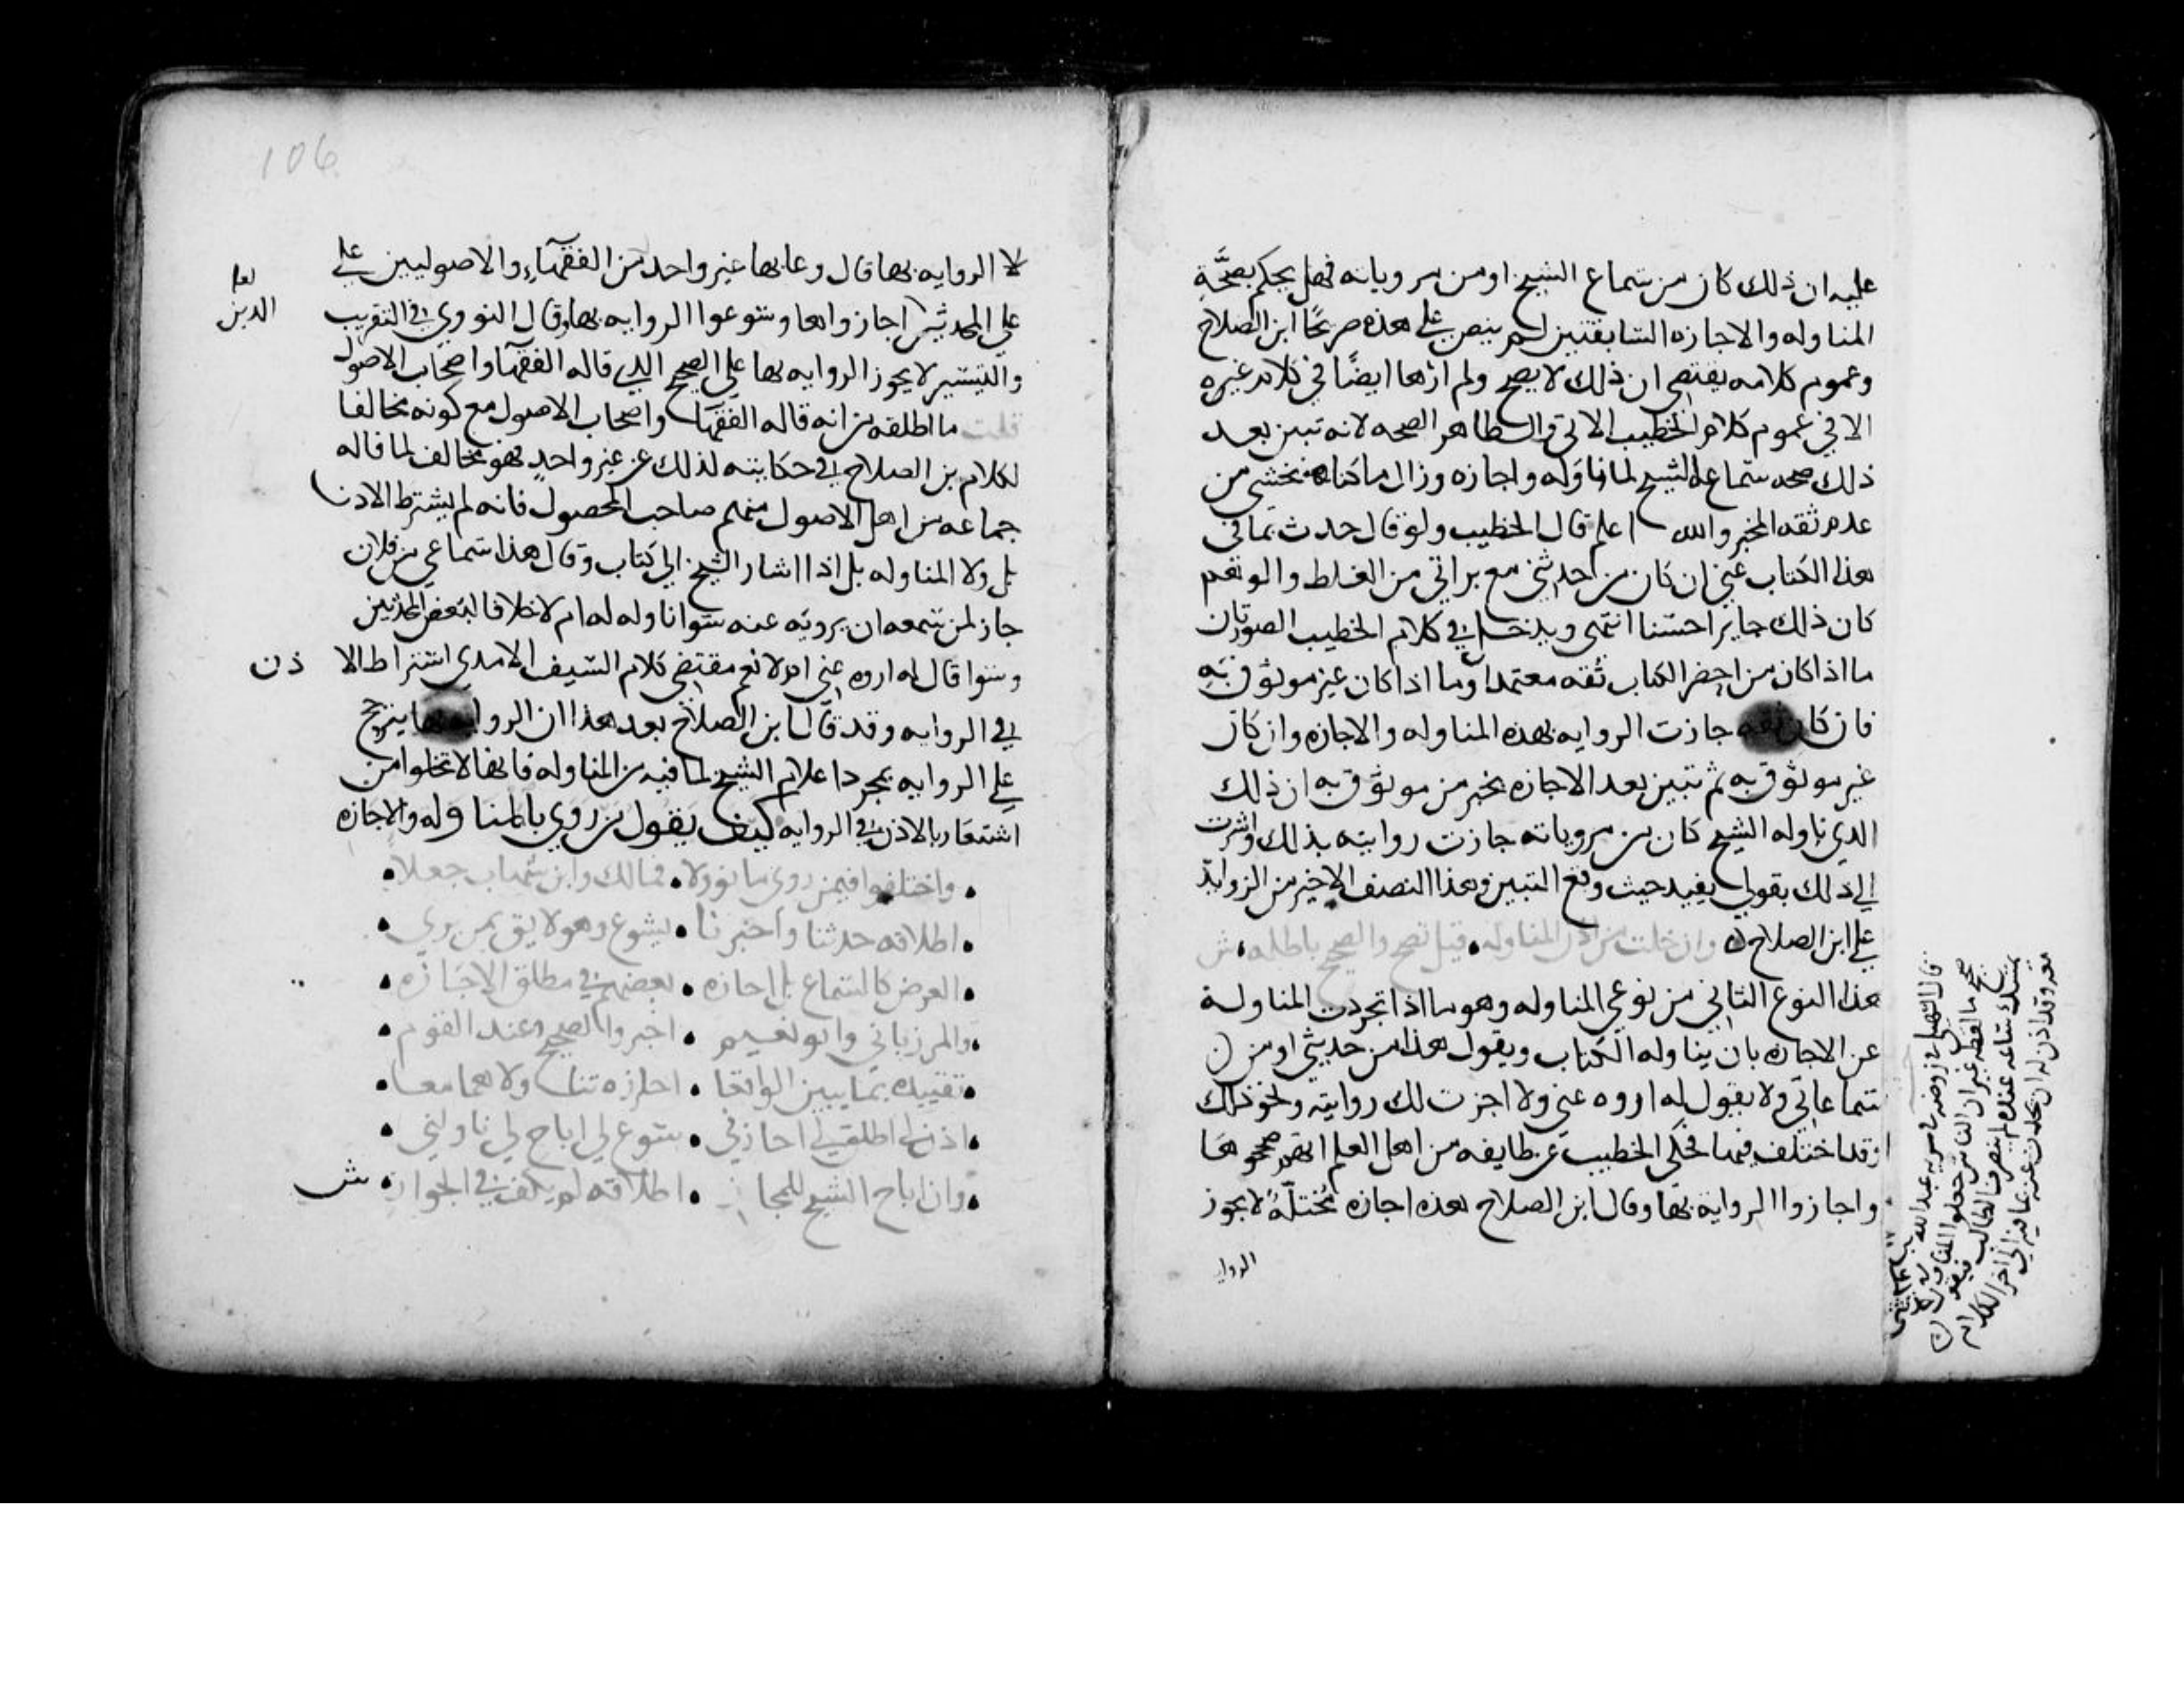 عليه ان ذلك كان من سماع الشيخ او من مروياته فهل يحكم بصحَّةِ
المناوله والاجازه السابقتين لم ينص على هذه صريحًا ابن الصلاح
وعموم كلامه يقتضي ان ذلك لا يصح ولم ارها ايضًا في كلام غيره
الا في عموم كلام الخطيب الاتي والظاهر الصحه لانه تبين بعد
ذلك صحه سماع الشيخ لما ناوَله واجازه وزال ما كنا نخشى من
عدم ثقه المخبر والله اعلم قال الخطيب ولو قال حدث بما في
هذا الكتاب عني ان كان من حديثي مع براتي من الغلط والوهم
كان ذلك جايزا حسنا انتهى ويدخل في كلام الخطيب الصورتان
ما اذا كان من احضر الكتاب ثقه معتمدا وما اذا كان غير موثوق به
فان كان ثقه جازت الروايه بهذه المناوله والاجازه وان كان
غير موثوق به ثم تبين بعد الاجازه بخبر من موثوق به ان ذلك
الذي ناوله الشيخ كان من مروياته جازت روايته بذلك واشرت
الى ذلك بقولي يفيد حيث وقع التبين وهذا النصف الاخير من الزوايد
على ابن الصلاح وان خلت من اذن المناوله قيل تصح والصحيح باطله ش
هذا النوع الثاني من نوعي المناوله وهو ما اذا تجردت المناولة
عن الاجازه بان يناوله الكتاب ويقول هذا من حديثي او من
سماعاتي ولا يقول له اروه عني ولا اجزت لك روايته ونحو ذلك
وقد اختلف فيها فحكى الخطيب عن طايفه من اهل العلم انهم صححوها
واجازوا الرواية بها وقال ابن الصلاح هذه اجازه مُختلّةٌ لا يجوز
الروا
قال السهيلي في روضه في سريه عبد الله بن جحش
صحيح ما لفظه غير ان الناس جعلوا المناوله
معه وقد اذن له ان يحدث عنه بما فيه الى اخر الكلام
106
لا الروايه بها قال وعابها غير واحد من الفقهاء والاصوليين على
على المحدثين اجازوها وسوغوا الروايه بها وقال النووي في التقريب
الذين
والتيسير لا يجوز الروايه بها على الصحيح الذي قاله الفقها واصحاب الاصول
قلت ما اطلقه من انه قاله الفقها واصحاب الاصول مع كونه مخالفا
لكلام بن الصلاح في حكايته لذلك عن غير واحدٍ فهو مخالف لما قاله
جماعه من اهل الاصول منهم صاحب المحصول فانه لم يشترط الاذن
بل ولا المناوله بل اذا اشار الشيخ الى كتاب وقال هذا سماعي من فلان
جاز لمن سمعه ان يرويه عنه سوا ناوله له ام لا خلافا لبعض المحدثين
وسوا قال له اروه عني ام لا نعم مقتضى كلام السيف الامدي اشتراط الا ذن
في الروايه وقد قال ابن الصلاح بعد هذا ان الروايه بها يترجح
على الروايه بمجرد اعلام الشيخ لما فيه من المناوله فانها لا تخلوا من
اشعار بالاذن في الروايه كيف يَقول من روى بالمناوله والاجازه
واختلفوا فيمن روى ما نوولا • فمالك وابن شهاب جعلا •
• اطلاقه حدثنا واخبرنا • يسوغ وهو لايق بمن يرى •
• العرض كالسماع بل اجازه • بعضهم في مطلق الاجازَه •
• والمرزباني وابو نعيم • اخبر والصحيح عند القوم •
• تقييده بما يبين الواقعا • اجازه تناولا هما معا •
• اذن لي اطلق لي اجازني • سوغ لي اباح لي ناولني •
• وان اباح الشيخ للمجاز • اطلاقه لم يكف في الجواز • ش